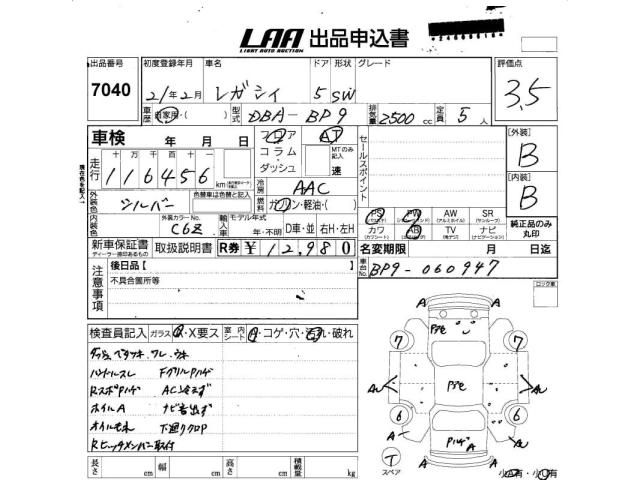 LAA 出品申込書
LIGHT AUTO AUCTION
出品番号 初度登録年月 車名 ドア 形状 グレード 評価点
7040 21年2月 レガシィ 5 SW 3.5
車歴 自家用・( ) 型式 DBA-BP9 排気量 2500 cc 定員 5 人
車検 年 月 日 フロア AT
コラム・ MTのみ記入
ダッシュ 速
セールスポイント
[外装] B
[内装] B
走行 十 万 千 百 十 一
116456 km
冷房 AAC
現在色を記入→
外装色 シルバー 色替車は色替と記入 燃料 ガソリン・軽油・( )
内装色 外装カラーNo. C6Z 輸入車 モデル年式 年・不明 D車・並 右H・左H
PS PW AW SR
カワ AB TV ナビ
純正品のみ丸印
新車保証書 取扱説明書 R券 ¥12,980
ディーラー捺印あるもの
名変期限 月 日迄
車台No. BP9-060947
注意事項 後日品[ ]
不具合箇所等
ロック車
検査員記入 ガラス A・X要ス 室内シート コゲ・穴・汚れ・破れ
ダッシュ ベタツキ ワレ ウキ
ハンドルスレ FグリルPハゲ
RスポPハゲ AC冷えず
ホイルA ナビ音出ず
オイルモレ 下廻りクロP
Rヒッチメンバー取付
長さ cm 幅 cm 高さ cm 積載量 kg
スペア T